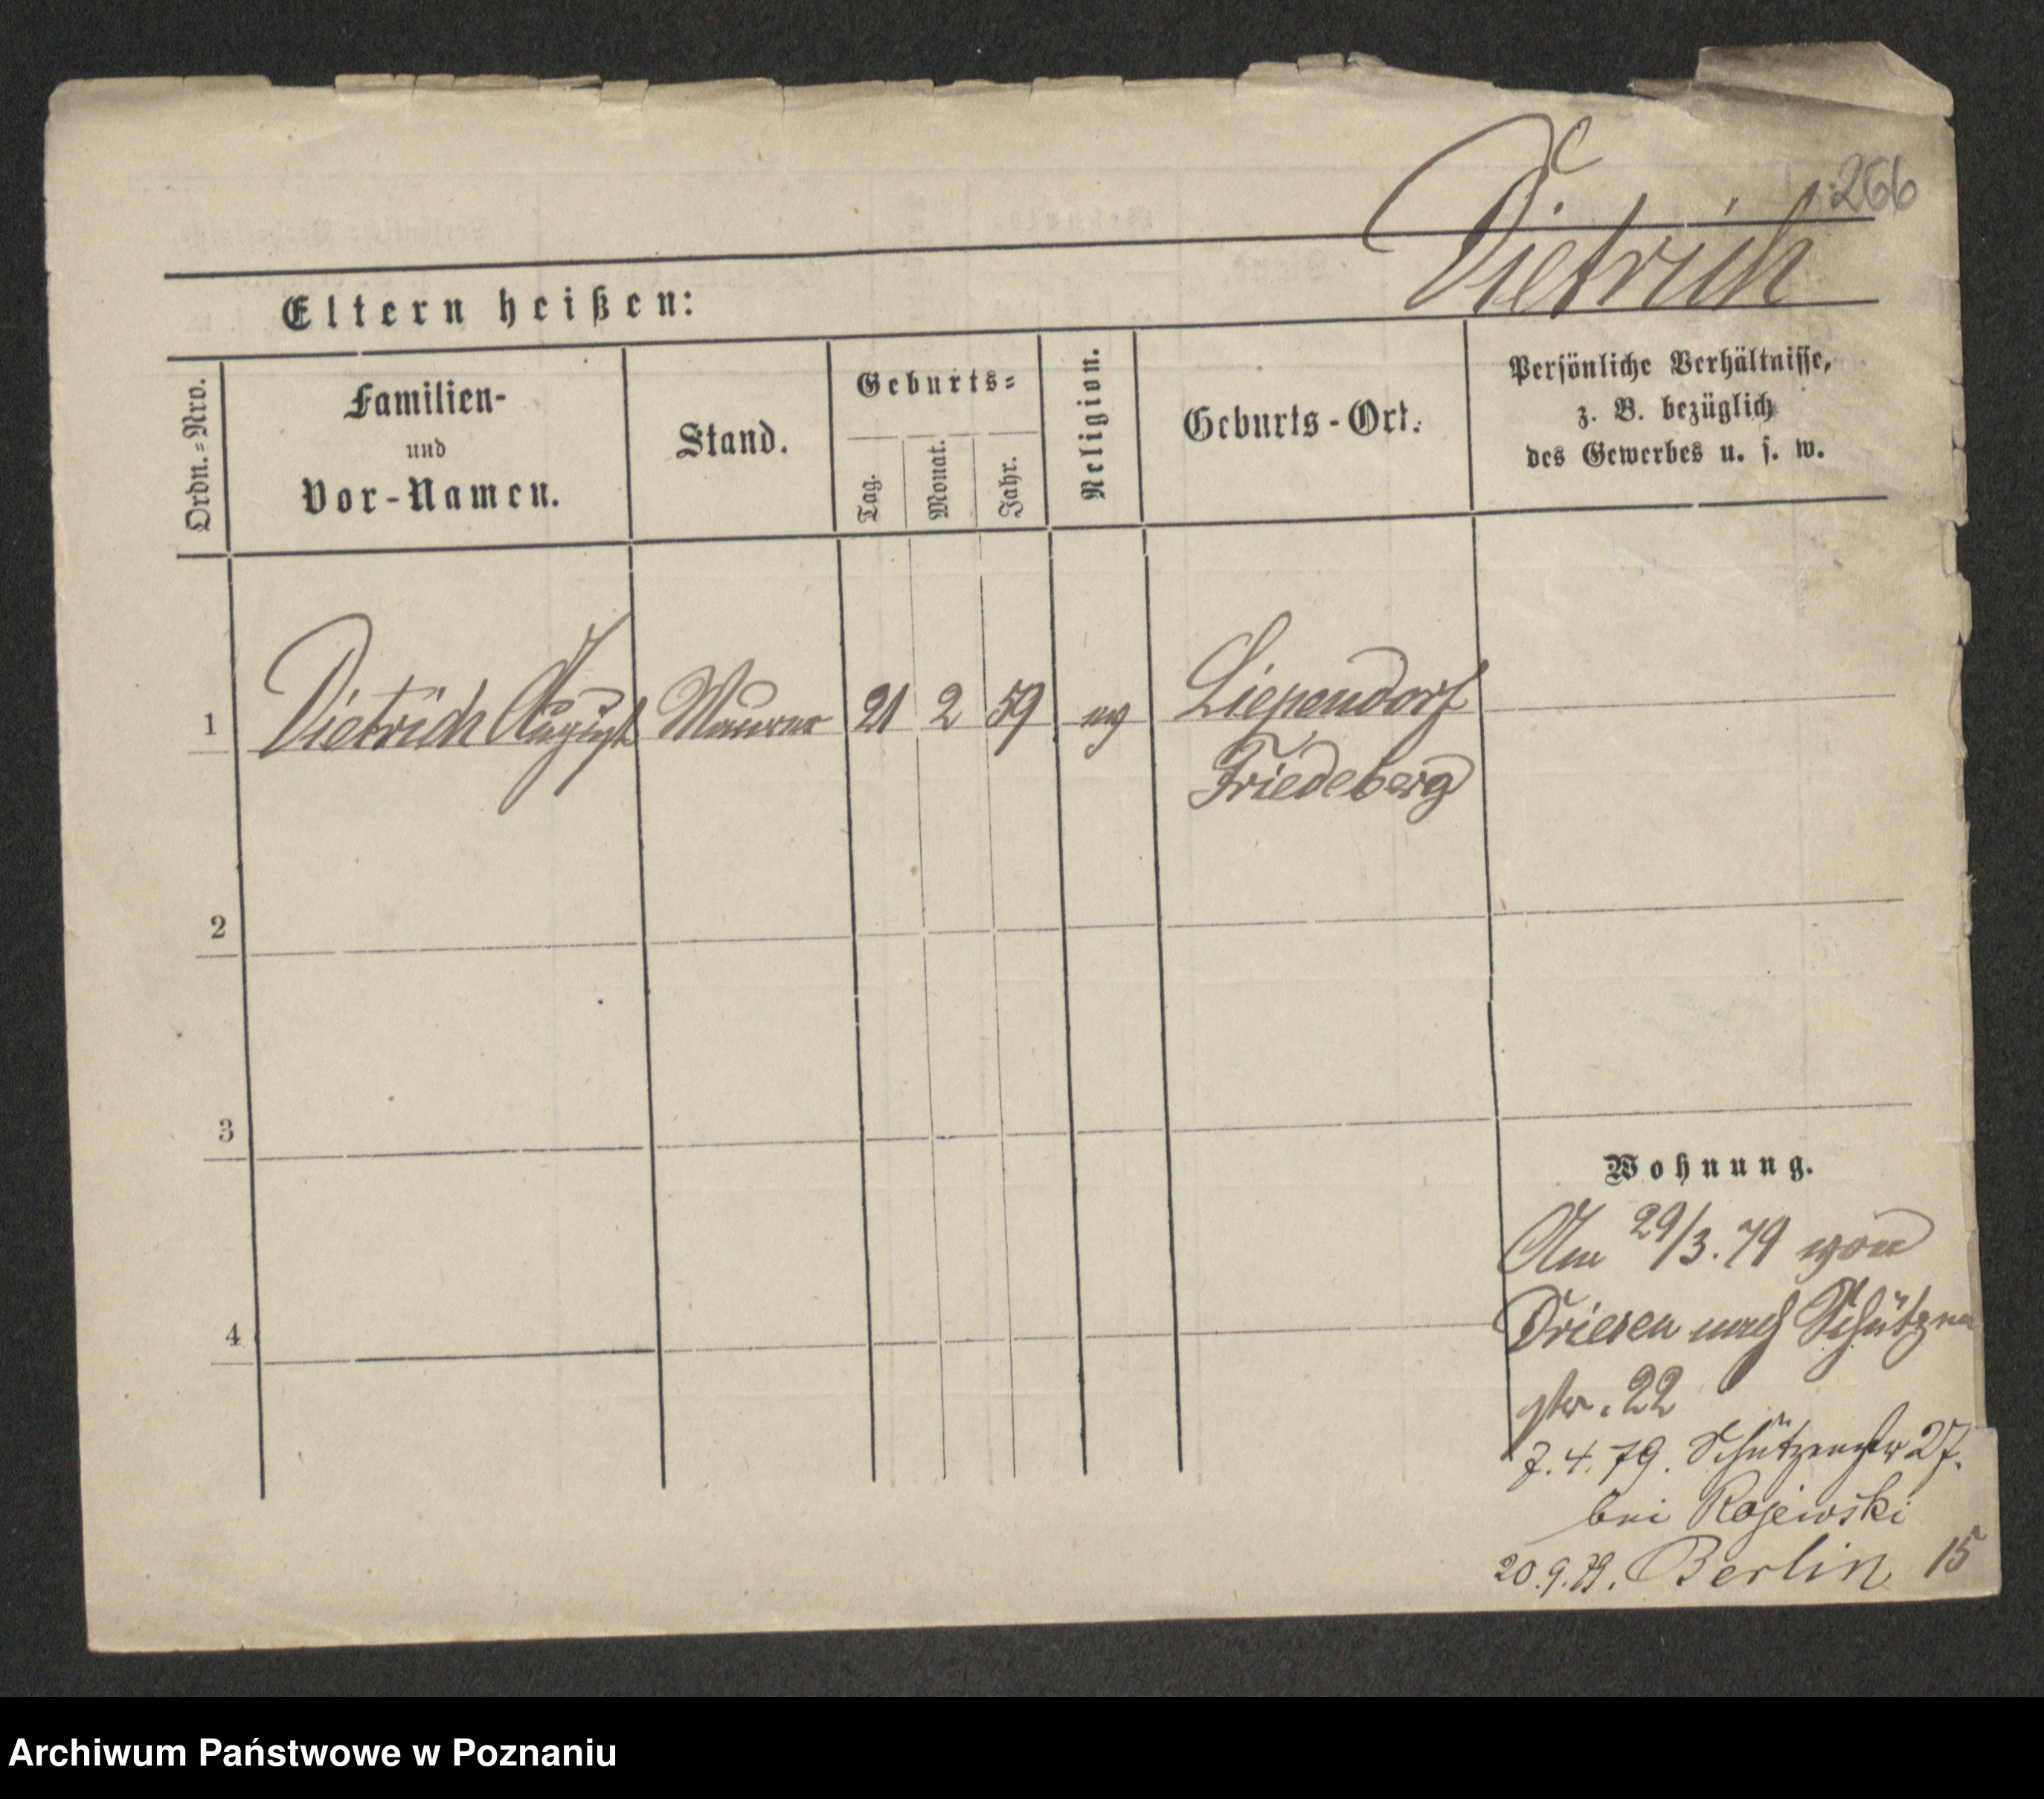 266
Dietrich
Eltern heißen:
Ordn.=Nro.
Familien-
und
Vor-Namen.
Stand.
Geburts=
Tag.
Monat.
Jahr.
Religion.
Geburts-Ort.
Persönliche Verhältnisse,
z. B. bezüglich
des Gewerbes u. s. w.
1 Dietrich August Maurer 21 2 59 ev Liependorf
Friedeberg
2
3
4
Wohnung.
Am 29/3. 79 von
Driesen nach Schützen
str. 22
7. 4. 79. Schützenstr 27.
bei Rojewski
20.9.79. Berlin 15
Archiwum Państwowe w Poznaniu